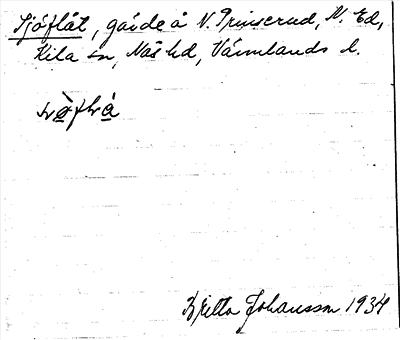 Sjöflåt, gärde å V. Prinserud, N. Ed,
Kila sn, Näs hd, Värmlands l.
Britta Johansson 1934